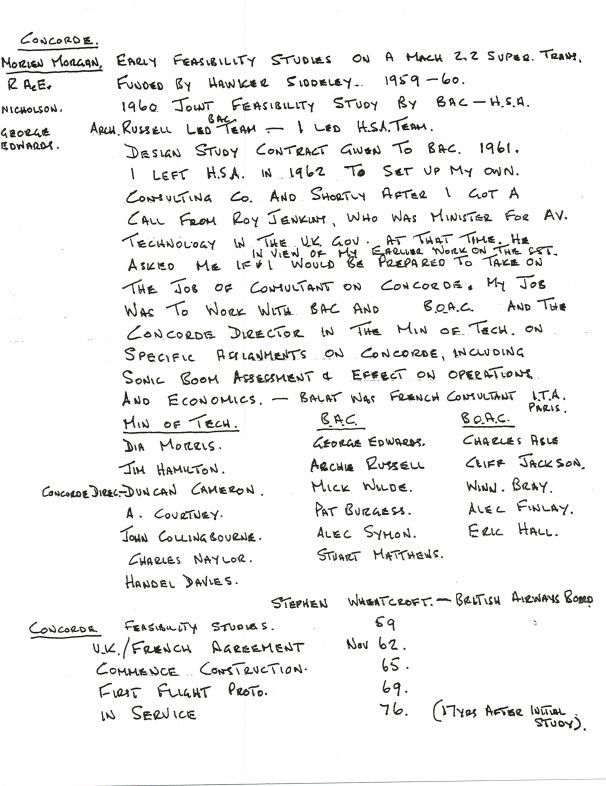 CONCORDE.
MORIEN MORGAN, EARLY FEASIBILITY STUDIES ON A MACH 2.2 SUPER. TRANS.
R.A.E. FUNDED BY HAWKER SIDDELEY. 1959-60.
NICHOLSON. 1960 JOINT FEASIBILITY STUDY BY BAC-H.S.A.
GEORGE EDWARDS. ARCH. RUSSELL LED BAC TEAM - I LED H.S.A. TEAM.
DESIGN STUDY CONTRACT GIVEN TO BAC. 1961.
I LEFT H.S.A. IN 1962 TO SET UP MY OWN.
CONSULTING CO. AND SHORTLY AFTER I GOT A
CALL FROM ROY JENKINS, WHO WAS MINISTER FOR AV.
TECHNOLOGY IN THE U.K GOV. AT THAT TIME. HE
IN VIEW OF MY EARLIER WORK ON THE SST.
ASKED ME IF I WOULD BE PREPARED TO TAKE ON
THE JOB OF CONSULTANT ON CONCORDE. MY JOB
WAS TO WORK WITH BAC AND B.O.A.C. AND THE
CONCORDE DIRECTOR IN THE MIN OF TECH. ON
SPECIFIC ASSIGNMENTS ON CONCORDE, INCLUDING
SONIC BOOM ASSESSMENT & EFFECT ON OPERATIONS
AND ECONOMICS. - BALAT WAS FRENCH CONSULTANT I.T.A. PARIS.
MIN OF TECH. B.A.C. B.O.A.C.
DIA MORRIS. GEORGE EDWARDS. CHARLES ABLE
JIM HAMILTON. ARCHIE RUSSELL CLIFF JACKSON.
CONCORDE DIREC-DUNCAN CAMERON. MICK WILDE. WINN. BRAY.
A. COURTNEY. PAT BURGESS. ALEC FINLAY.
JOHN COLLINGBOURNE. ALEC SYMON. ERIC HALL.
CHARLES NAYLOR. STUART MATTHEWS.
HANDEL DAVIES.
STEPHEN WHEATCROFT. - BRITISH AIRWAYS BOARD
CONCORDE FEASIBILITY STUDIES. 59
U.K./FRENCH AGREEMENT NOV 62.
COMMENCE CONSTRUCTION. 65.
FIRST FLIGHT PROTO. 69.
IN SERVICE 76. (17YRS AFTER INITIAL STUDY).